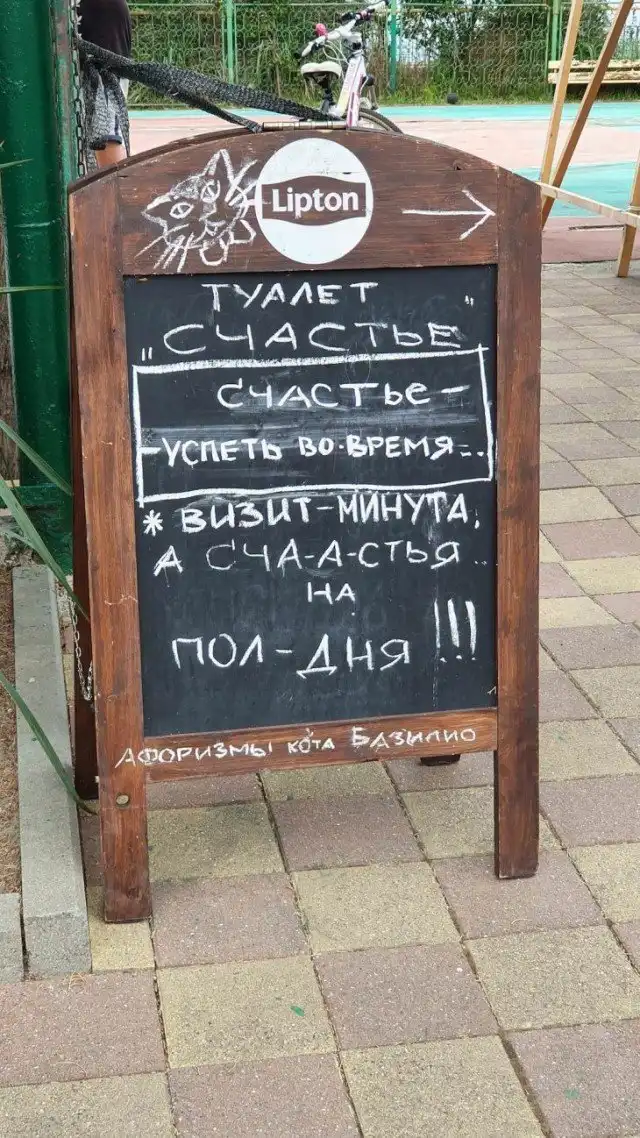 Lipton
ТУАЛЕТ
„СЧАСТЬЕ"
СЧАСТЬЕ –
–УСПЕТЬ ВО-ВРЕМЯ–..
* ВИЗИТ-МИНУТА,
А СЧА-А-СТЬЯ..
НА
ПОЛ-ДНЯ !!!
АФОРИЗМЫ КОТА БАЗИЛИО